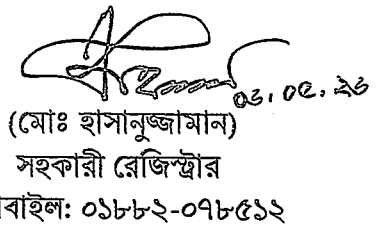 ০৬.০৫.২৬
(মোঃ হাসানুজ্জামান)
সহকারী রেজিস্ট্রার
বাইল: ০১৮৮২-০৭৮৫১২